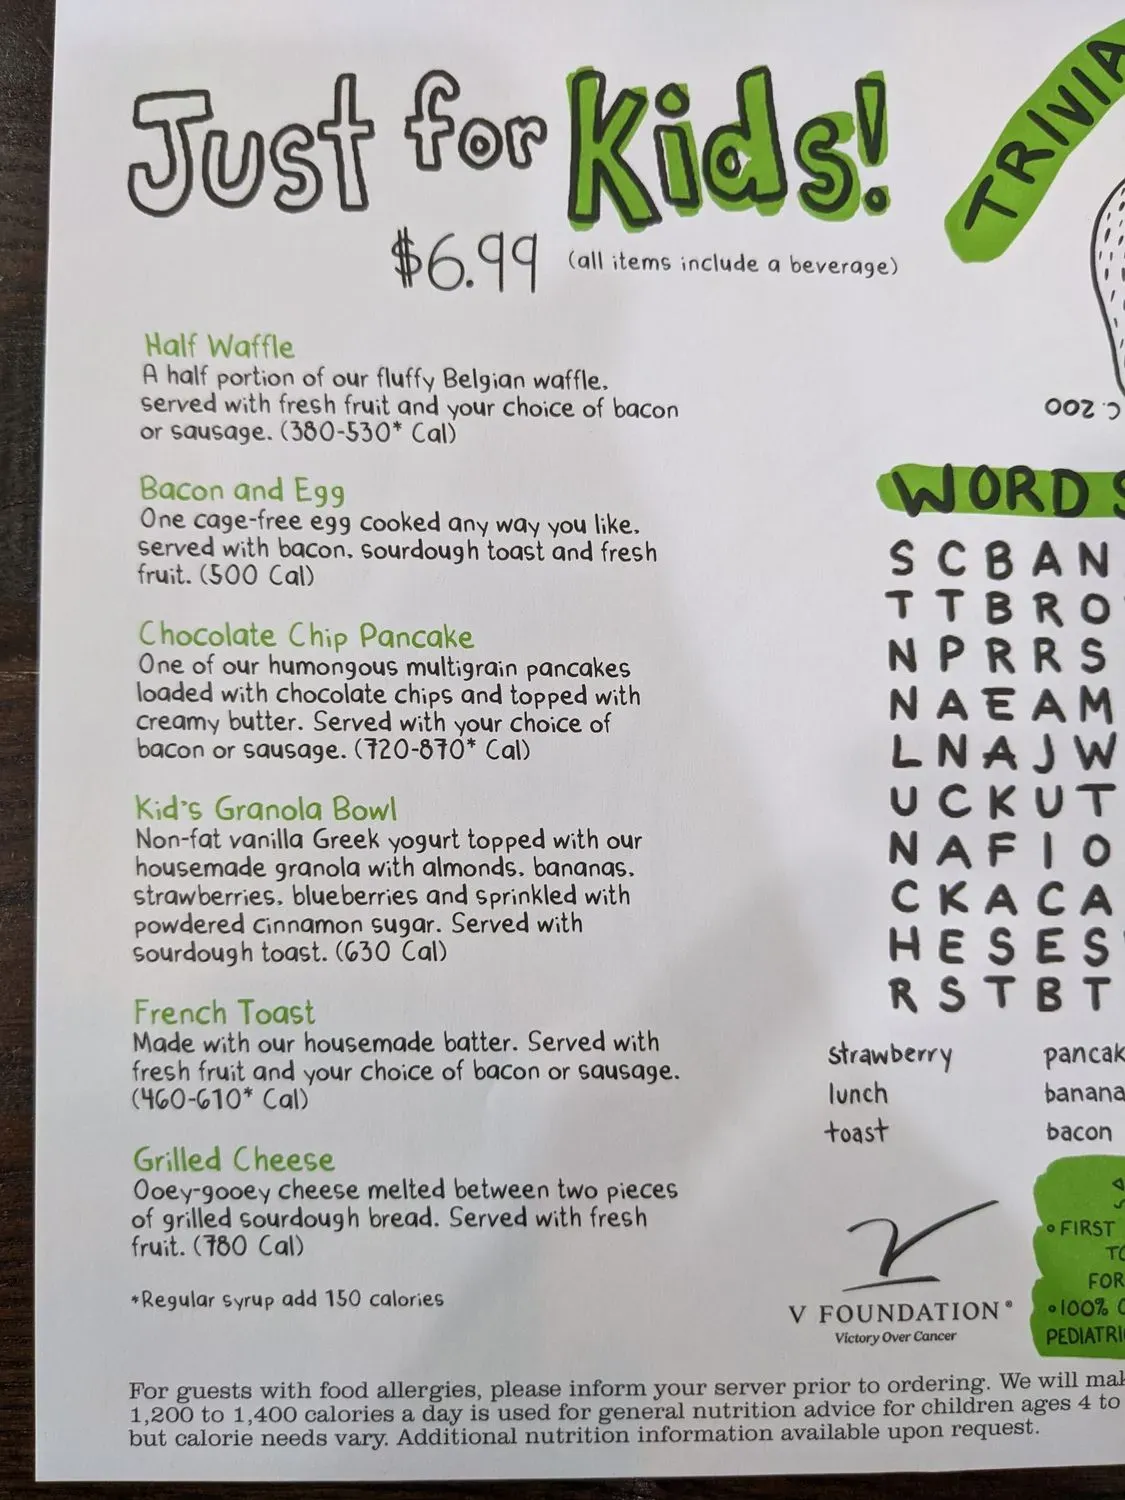 Just for Kids!
$6.99 (all items include a beverage)
Half Waffle
A half portion of our fluffy Belgian waffle,
served with fresh fruit and your choice of bacon
or sausage. (380-530* Cal)
Bacon and Egg
One cage-free egg cooked any way you like,
served with bacon, sourdough toast and fresh
fruit. (500 Cal)
Chocolate Chip Pancake
One of our humongous multigrain pancakes
loaded with chocolate chips and topped with
creamy butter. Served with your choice of
bacon or sausage. (720-870* Cal)
Kid's Granola Bowl
Non-fat vanilla Greek yogurt topped with our
housemade granola with almonds, bananas,
strawberries, blueberries and sprinkled with
powdered cinnamon sugar. Served with
sourdough toast. (630 Cal)
French Toast
Made with our housemade batter. Served with
fresh fruit and your choice of bacon or sausage.
(460-610* Cal)
Grilled Cheese
Ooey-gooey cheese melted between two pieces
of grilled sourdough bread. Served with fresh
fruit. (780 Cal)
*Regular syrup add 150 calories
TRIVIA
C. 200
WORD S
S C B A N
T T B R O
N P R R S
N A E A M
L N A J W
U C K U T
N A F I O
C K A C A
H E S E S
R S T B T
strawberry pancak
lunch banana
toast bacon
V FOUNDATION®
Victory Over Cancer
• FIRST
TO
FOR
• 100%
PEDIATRI
For guests with food allergies, please inform your server prior to ordering. We will mak
1,200 to 1,400 calories a day is used for general nutrition advice for children ages 4 to
but calorie needs vary. Additional nutrition information available upon request.